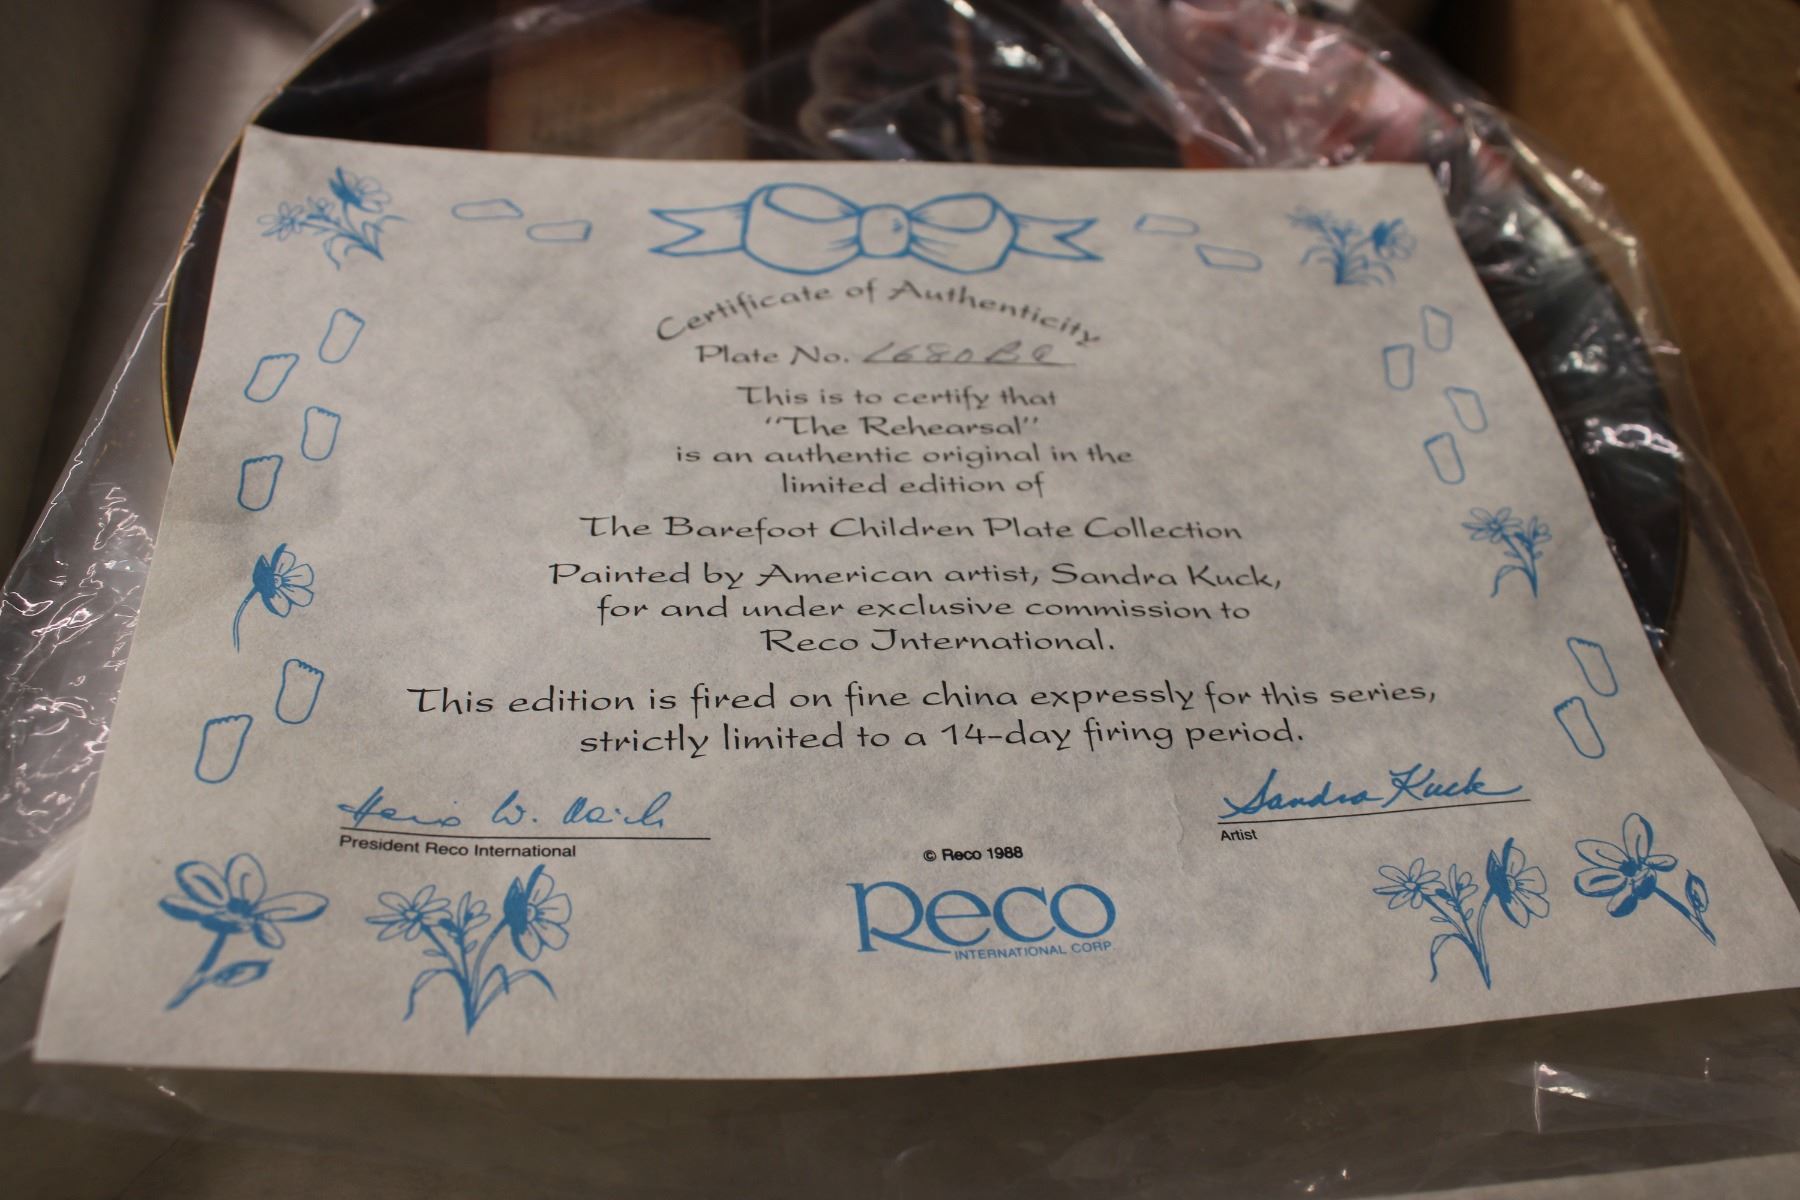 Certificate of Authenticity
Plate No.
This is to certify that
"The Rehearsal"
is an authentic original in the
limited edition of
The Barefoot Children Plate Collection
Painted by American artist, Sandra Kuck,
for and under exclusive commission to
Reco International.
This edition is fired on fine china expressly for this series,
strictly limited to a 14-day firing period.
Sandra Kuck
President Reco International
Artist
© Reco 1988
Reco
INTERNATIONAL CORP.